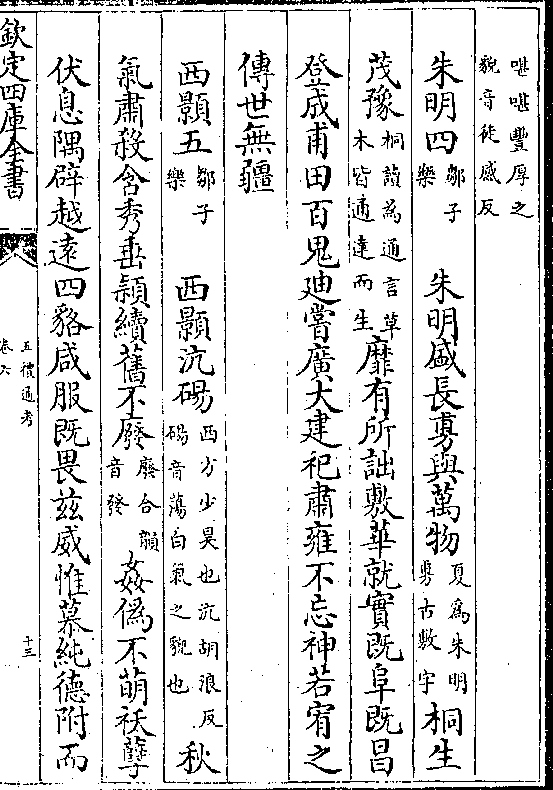 啿啿豐厚之
貌音徒感反
朱明四鄒子
樂　朱明盛長旉與萬物夏為朱明
旉古敷字桐生
茂豫桐讀為通言草
木皆通達而生靡有所詘敷華就實既阜既昌
登成甫田百鬼廸嘗廣大建祀肅雍不忘神若宥之
傳世無疆
西顥五鄒子
樂　西顥沆碭西方少昊也沆胡浪反
碭音蕩白氣之貌也秋
氣肅殺含秀垂穎續舊不廢廢合韻
音發姦偽不萌祅孽
伏息隅辟越遠四貉咸服既畏兹威惟慕純德附而
欽定四庫全書
五禮通考
卷六
十三